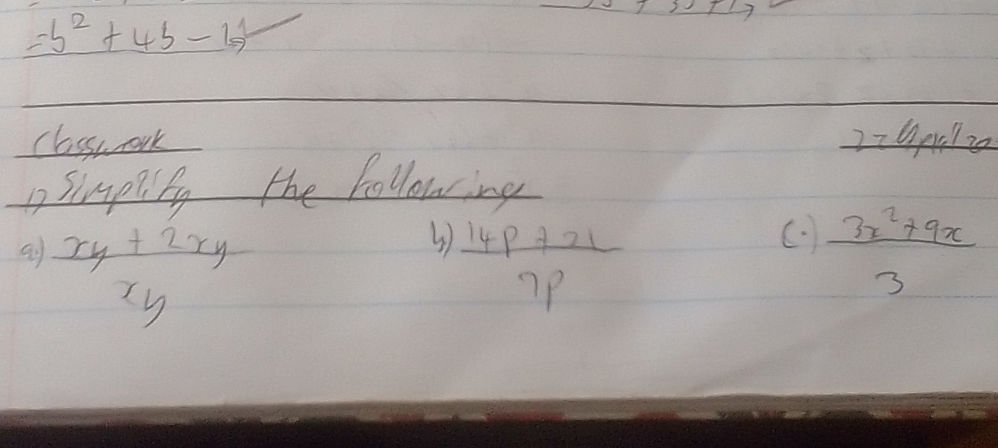 =b² + 4b - 
Classwork
1) Simplify the following
a) xy + 2xy
xy
b) 14p + 21
7p
(c.) 3x² + 9x
3